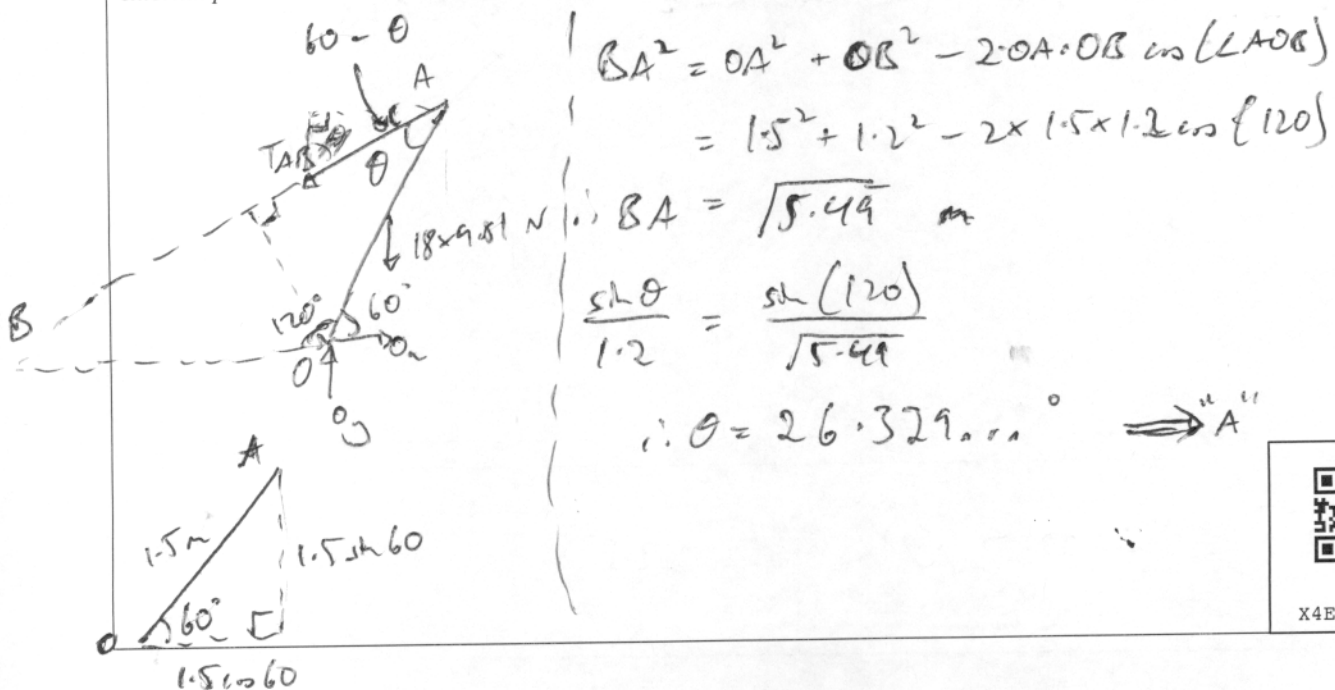 60 - θ
A
T_AB
θ
18×9.81 N
B
120°
60°
O
O_x
O_y
A
1.5m
1.5 sin 60
60°
O
1.5 cos 60
BA² = OA² + OB² - 2·OA·OB cos (∠AOB)
= 1.5² + 1.2² - 2 × 1.5 × 1.2 cos (120)
∴ BA = √5.49 m
sin θ / 1.2 = sin (120) / √5.49
∴ θ = 26.329...° ⟹ "A"
X4E